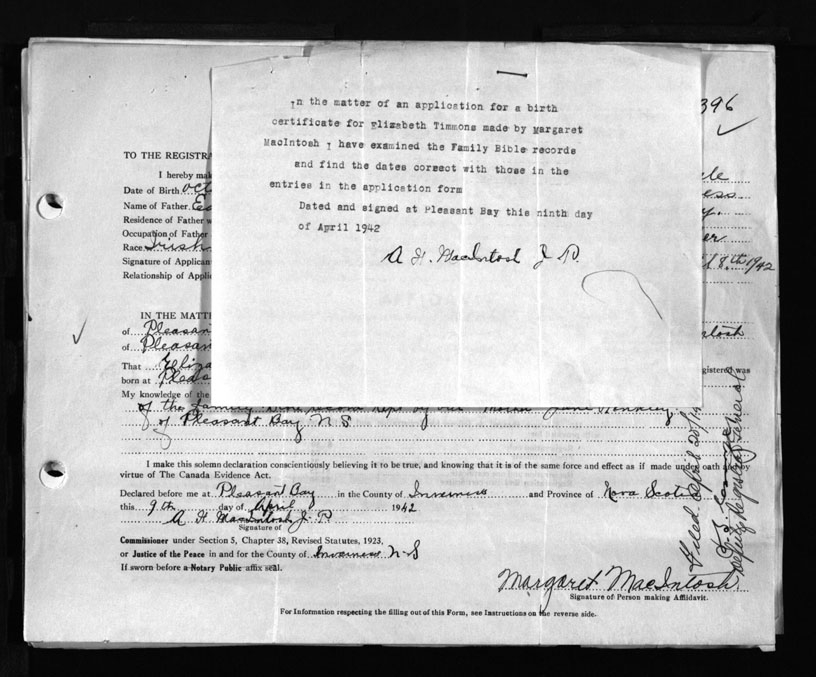 In the matter of an application for a birth
certificate for Elizabeth Timmons made by Margaret
MacIntosh I have examined the Family Bible records
and find the dates correct with those in the
entries in the application form
Dated and signed at Pleasant Bay this ninth day
of April 1942
A H. MacIntosh J P.
396
TO THE REGISTRA
I hereby mak
Date of Birth Oct
Name of Father
Residence of Father w
Occupation of Father
Race Irish
Signature of Applican
Relationship of Appli
8th 1942
IN THE MATT
of Pleasan
of Pleasan
ntosh
That Eliza
gistered was
born at Pleas
My knowledge of the
of the family
of Pleasant Bay N S
I make this solemn declaration conscientiously believing it to be true, and knowing that it is of the same force and effect as if made under oath and by
virtue of The Canada Evidence Act.
Declared before me at Pleasant Bay in the County of Inverness and Province of Nova Scotia
this 9th day of April 1942
A H MacIntosh J P
Signature of
Commissioner under Section 5, Chapter 38, Revised Statutes, 1923,
or Justice of the Peace in and for the County of Inverness N-S
If sworn before a Notary Public affix seal.
Margaret MacIntosh
Signature of Person making Affidavit.
For Information respecting the filling out of this Form, see Instructions on the reverse side.
Filed April 20/
Deputy Registrar General